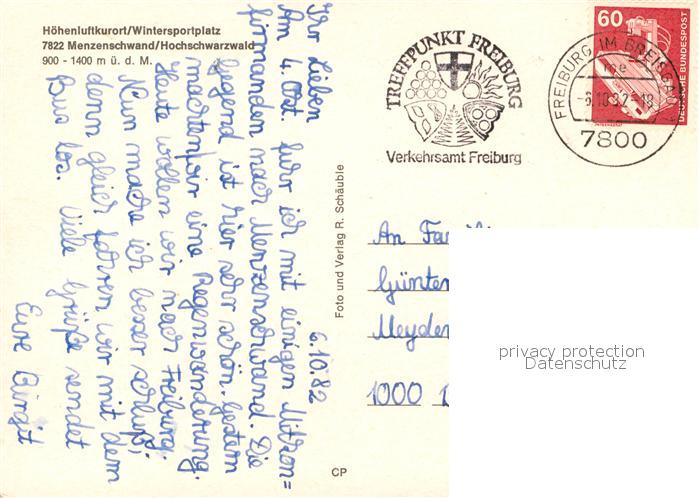 Höhenluftkurort/Wintersportplatz
7822 Menzenschwand/Hochschwarzwald
900 - 1400 m ü. d. M.
6.10.82
Ihr Lieben
Am 4. Okt. fuhr ich mit einigen Mitkon=
firmanden nach Menzenschwand. Die
Gegend ist hier sehr schön. Gestern
machten wir eine Regenwanderung.
Heute wollen wir nach Freiburg.
Nun mache ich besser schluß,
denn gleich fahren wir mit dem
Bus los. Viele Grüße sendet
Eure Birgit
Foto und Verlag R. Schäuble
CP
TREFFPUNKT FREIBURG
Verkehrsamt Freiburg
FREIBURG IM BREISGAU
me
-6.10.82-18
7800
60
DEUTSCHE BUNDESPOST
An Fam
Günter
Meyder
1000
privacy protection
Datenschutz